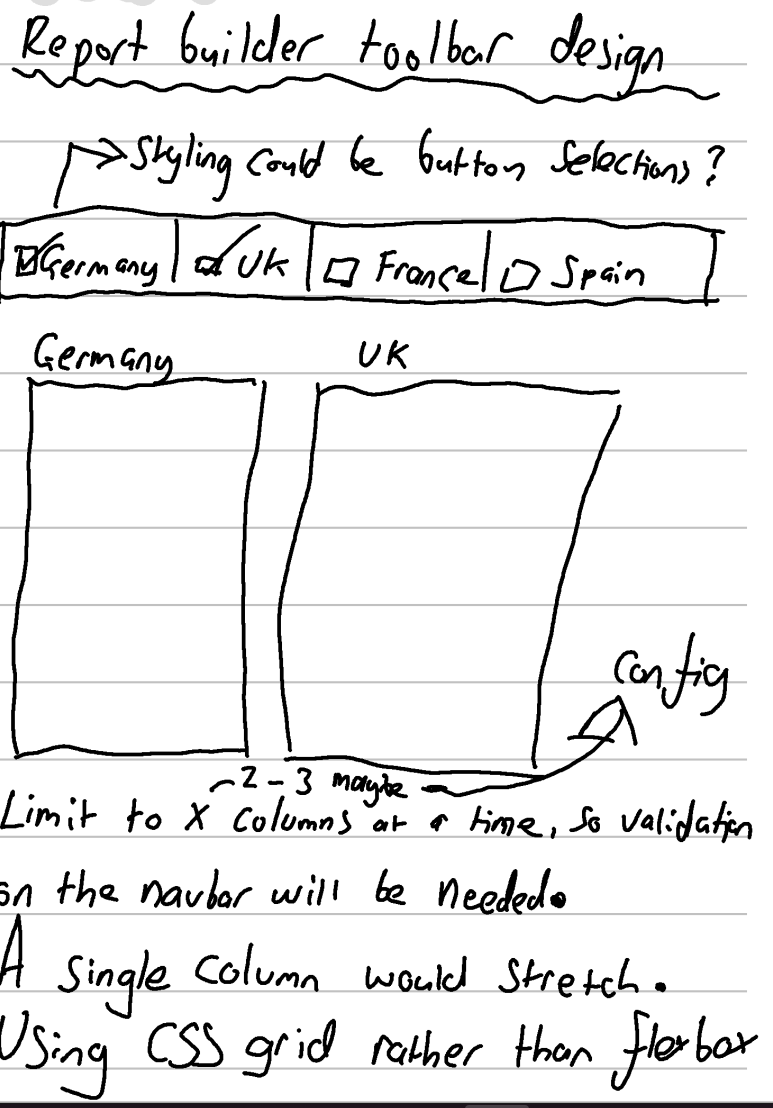 Report builder toolbar design
Styling could be button selections?
Germany UK France Spain
Germany UK
Config
2-3 maybe
Limit to X columns at a time, so validation
on the navbar will be needed.
A single column would stretch.
Using CSS grid rather than flexbox